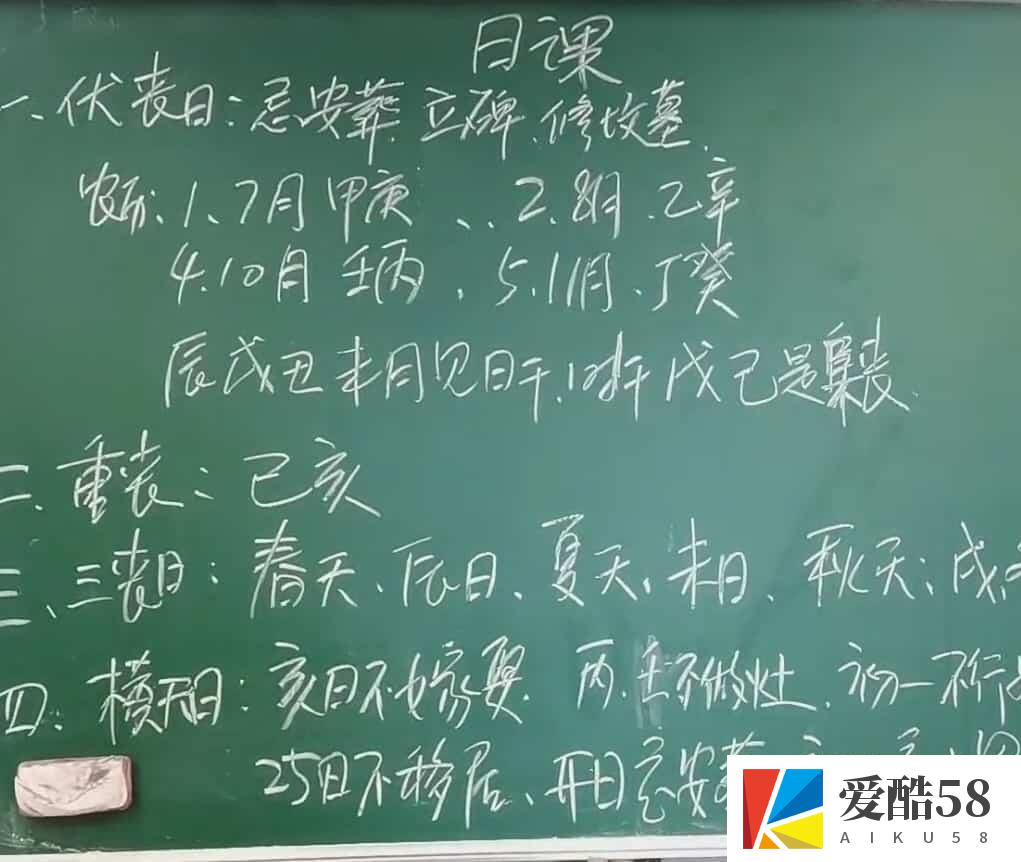 日课
一、伏丧日:忌安葬、立碑、修坟墓、
农历、1、7月甲庚、、2、8月、乙辛
4、10月壬丙、5、11月、丁癸
辰戌丑未月见日干、时干戊己是 丧、
二、重丧:己亥
三、三丧日:春天、辰日、夏天、未日、秋天、戌、
四、横天日:亥日不嫁娶 丙、壬不做灶、初一不行
25日不移居、开日忌安葬
爱酷58
AIKU58